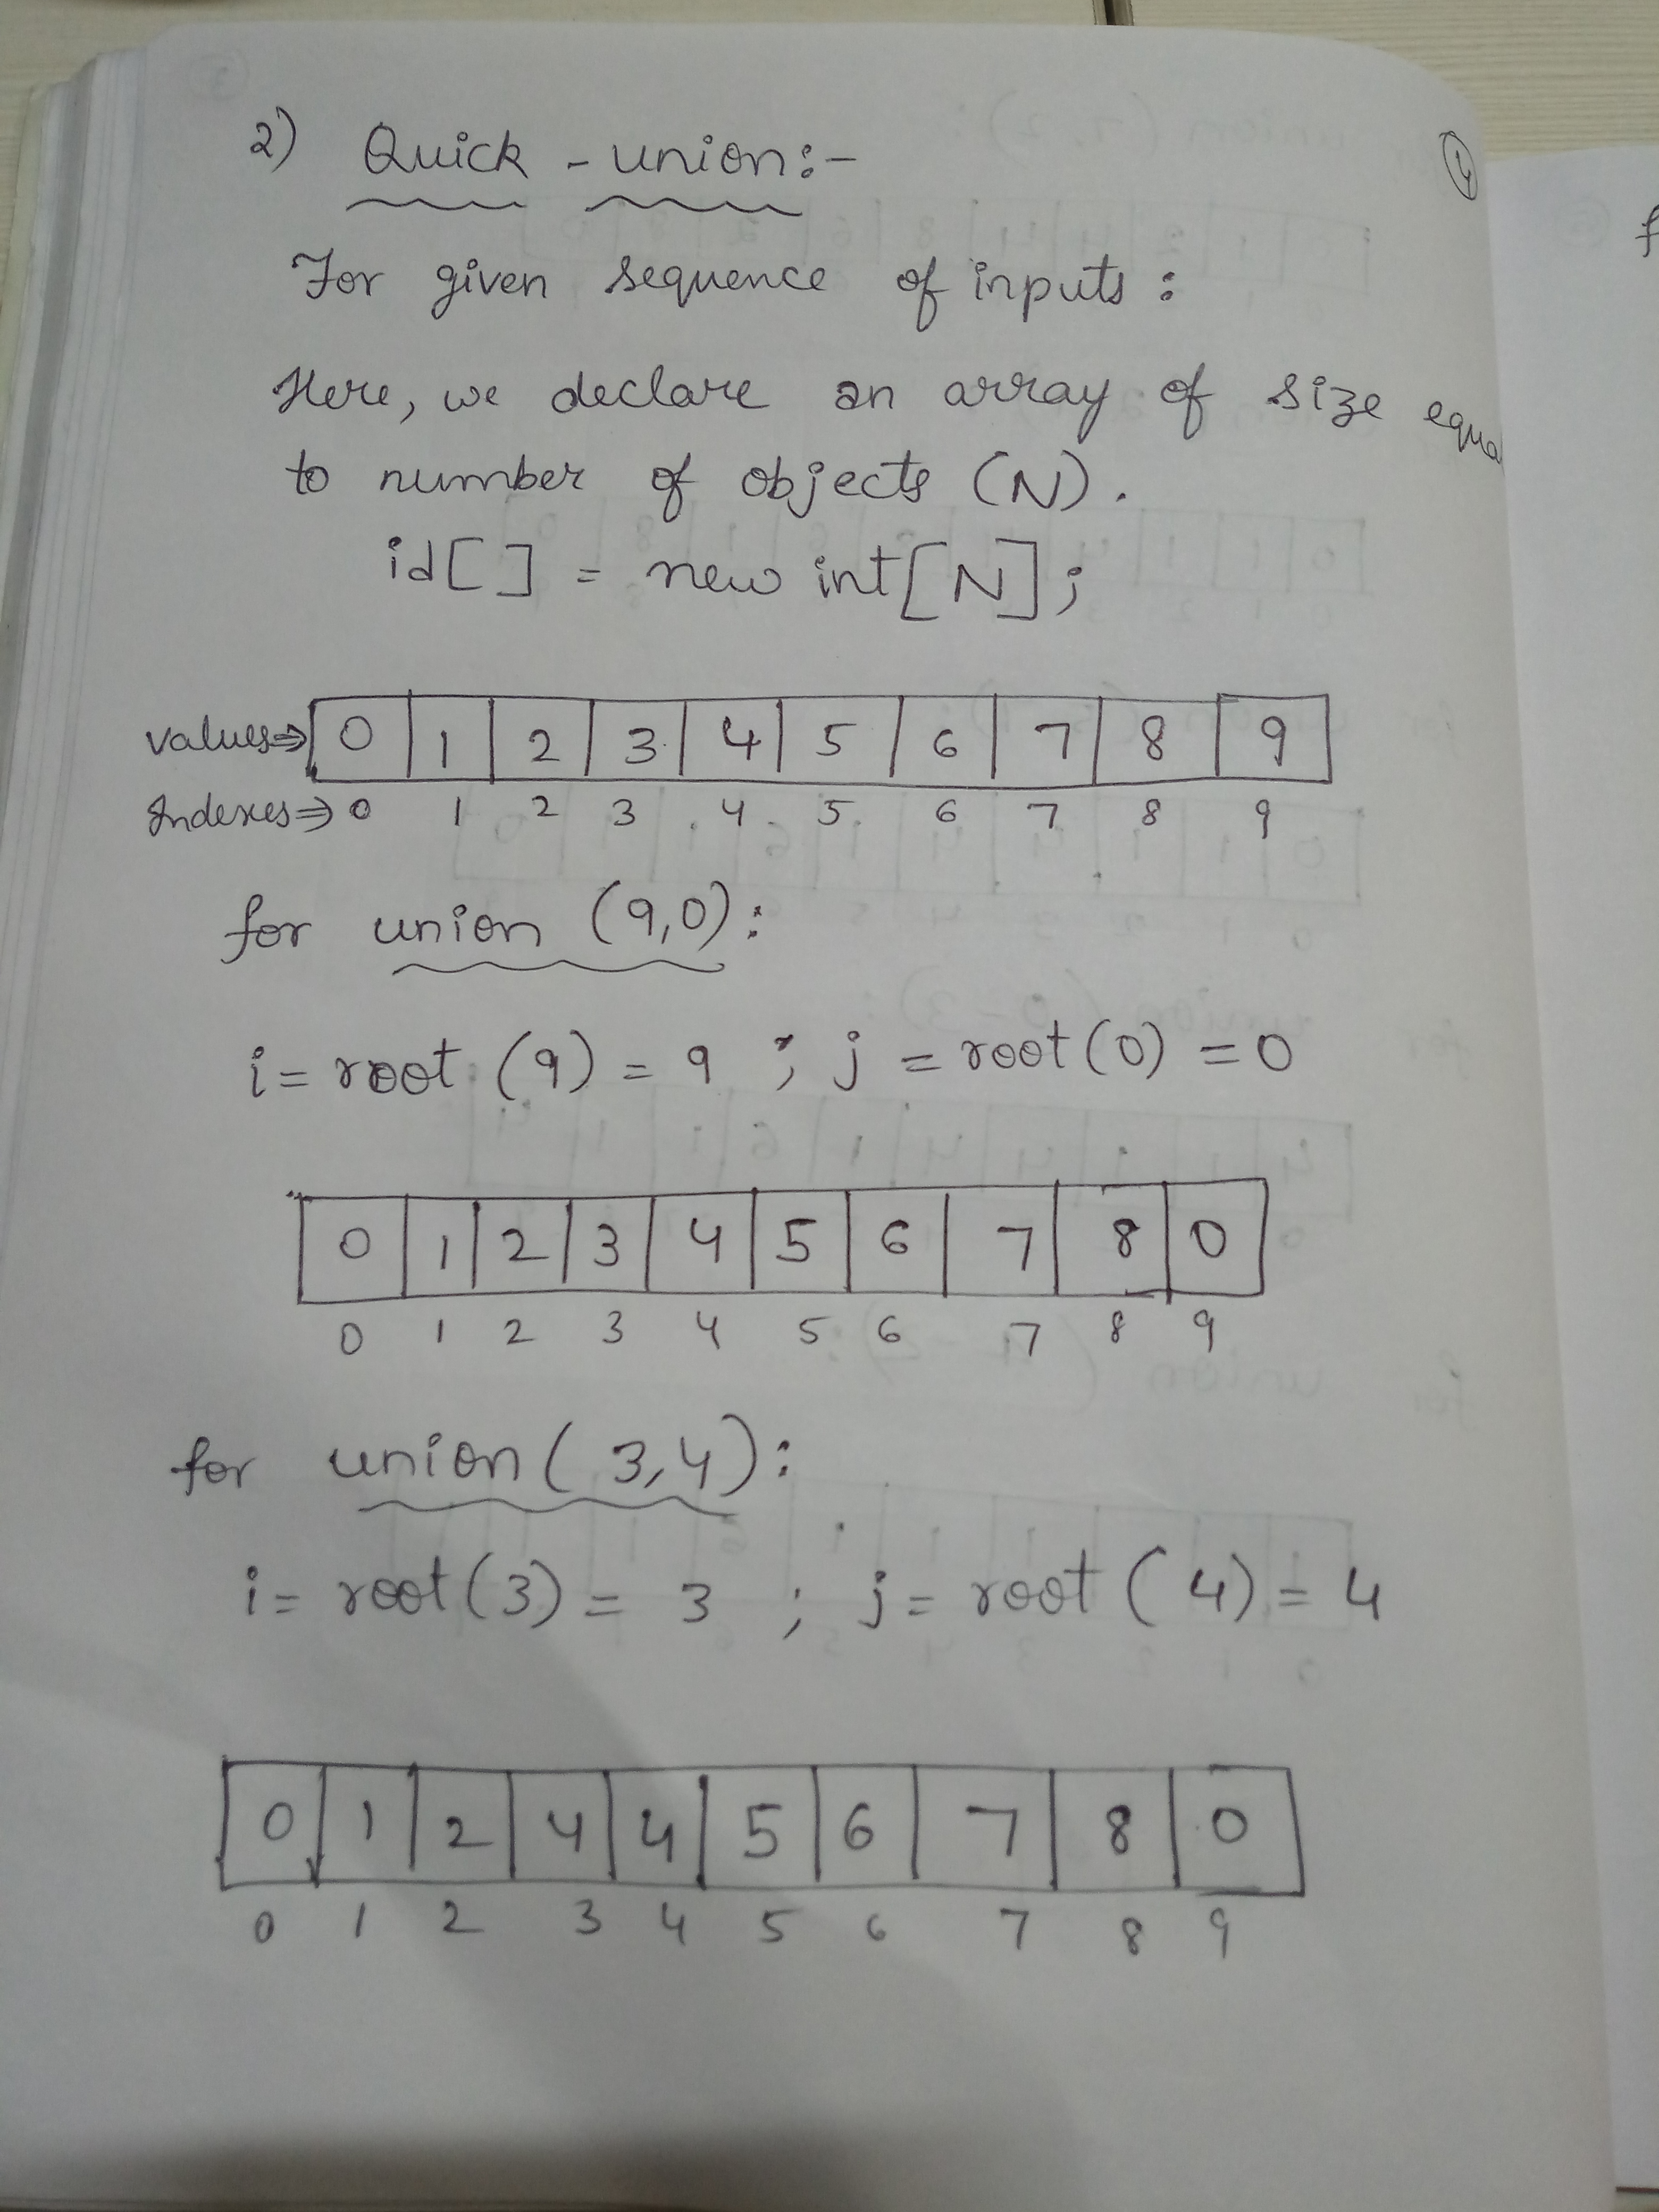 4
2) Quick - union:-
For given sequence of inputs :
Here, we declare an array of size equa
to number of objects (N).
id[ ] = new int[N];
values⇒ 0 1 2 3 4 5 6 7 8 9
Indexes⇒ 0 1 2 3 4 5 6 7 8 9
for union (9,0):
i = root (9) = 9 ; j = root(0) = 0
0 1 2 3 4 5 6 7 8 0
0 1 2 3 4 5 6 7 8 9
for union( 3,4):
i = root(3) = 3 ; j = root ( 4) = 4
0 1 2 4 4 5 6 7 8 0
0 1 2 3 4 5 6 7 8 9